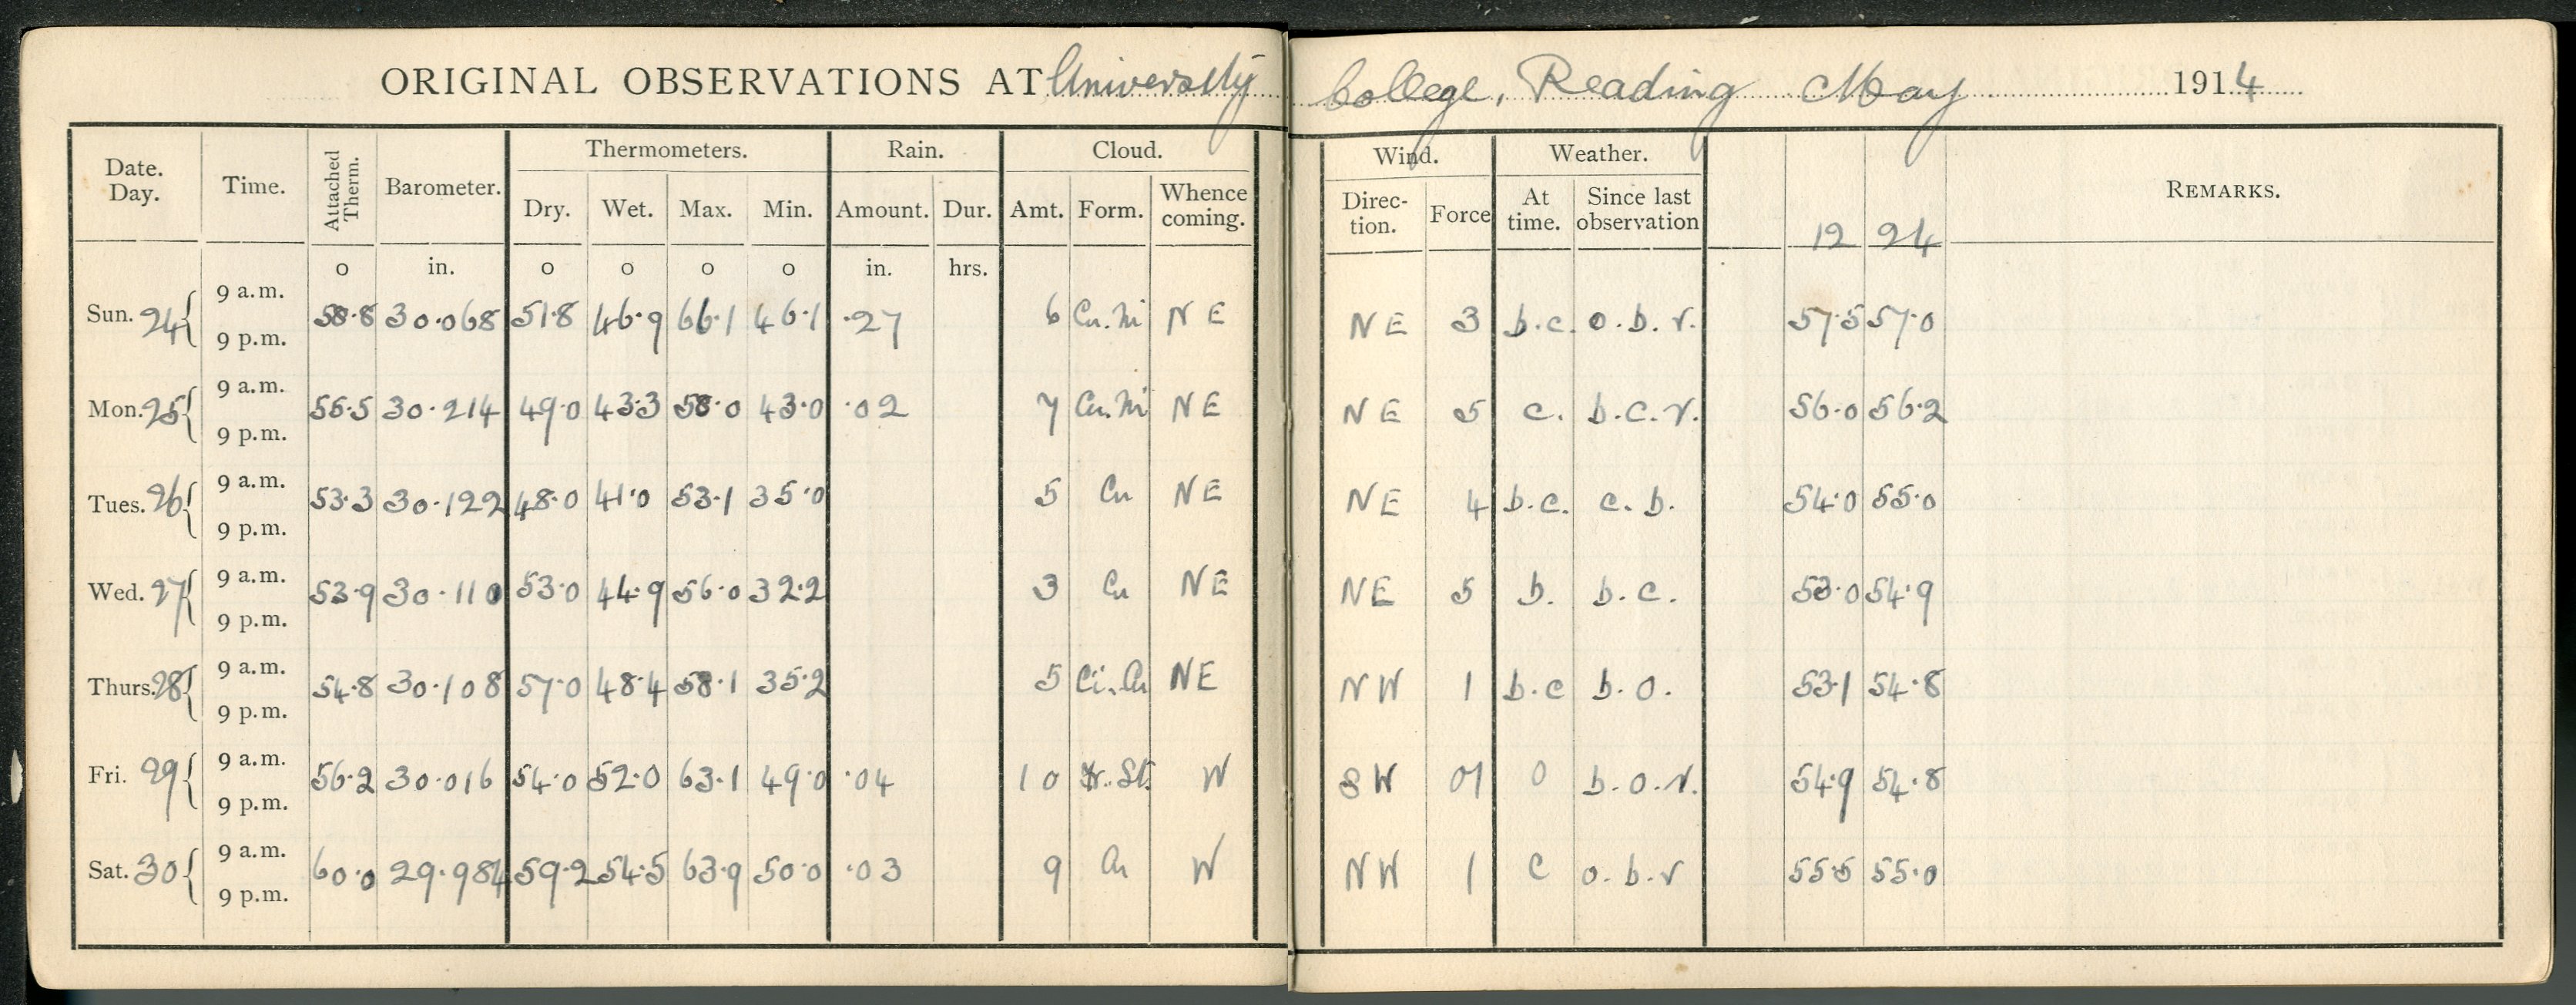 ORIGINAL OBSERVATIONS AT University College, Reading May 1914
Thermometers. Rain. Cloud. Wind. Weather.
Date. Day. Time. Attached Therm. Barometer. Dry. Wet. Max. Min. Amount. Dur. Amt. Form. Whence coming. Direc- tion. Force At time. Since last observation 12 24 REMARKS.
o in. o o o o in. hrs.
9 a.m.
Sun. 24 58.8 30.068 51.8 46.9 66.1 46.1 .27 6 Cu.Ni NE NE 3 b.c. o.b.r. 57.5 57.0
9 p.m.
9 a.m.
Mon. 25 55.5 30.214 49.0 43.3 58.0 43.0 .02 7 Cu.Ni NE NE 5 c. b.c.r. 56.0 56.2
9 p.m.
9 a.m.
Tues. 26 53.3 30.122 48.0 41.0 53.1 35.0 5 Cu NE NE 4 b.c. c.b. 54.0 55.0
9 p.m.
9 a.m.
Wed. 27 53.9 30.110 53.0 44.9 56.0 32.2 3 Cu NE NE 5 b. b.c. 53.0 54.9
9 p.m.
9 a.m.
Thurs. 28 54.8 30.108 57.0 48.4 58.1 35.2 5 Ci.Cu NE NW 1 b.c b.o. 53.1 54.8
9 p.m.
9 a.m.
Fri. 29 56.2 30.016 54.0 52.0 63.1 49.0 .04 10 W SW 01 0 b.o.r. 54.9 54.8
9 p.m.
9 a.m.
Sat. 30 60.0 29.984 59.2 54.5 63.9 50.0 .03 9 Cu W NW 1 c o.b.r 55.5 55.0
9 p.m.